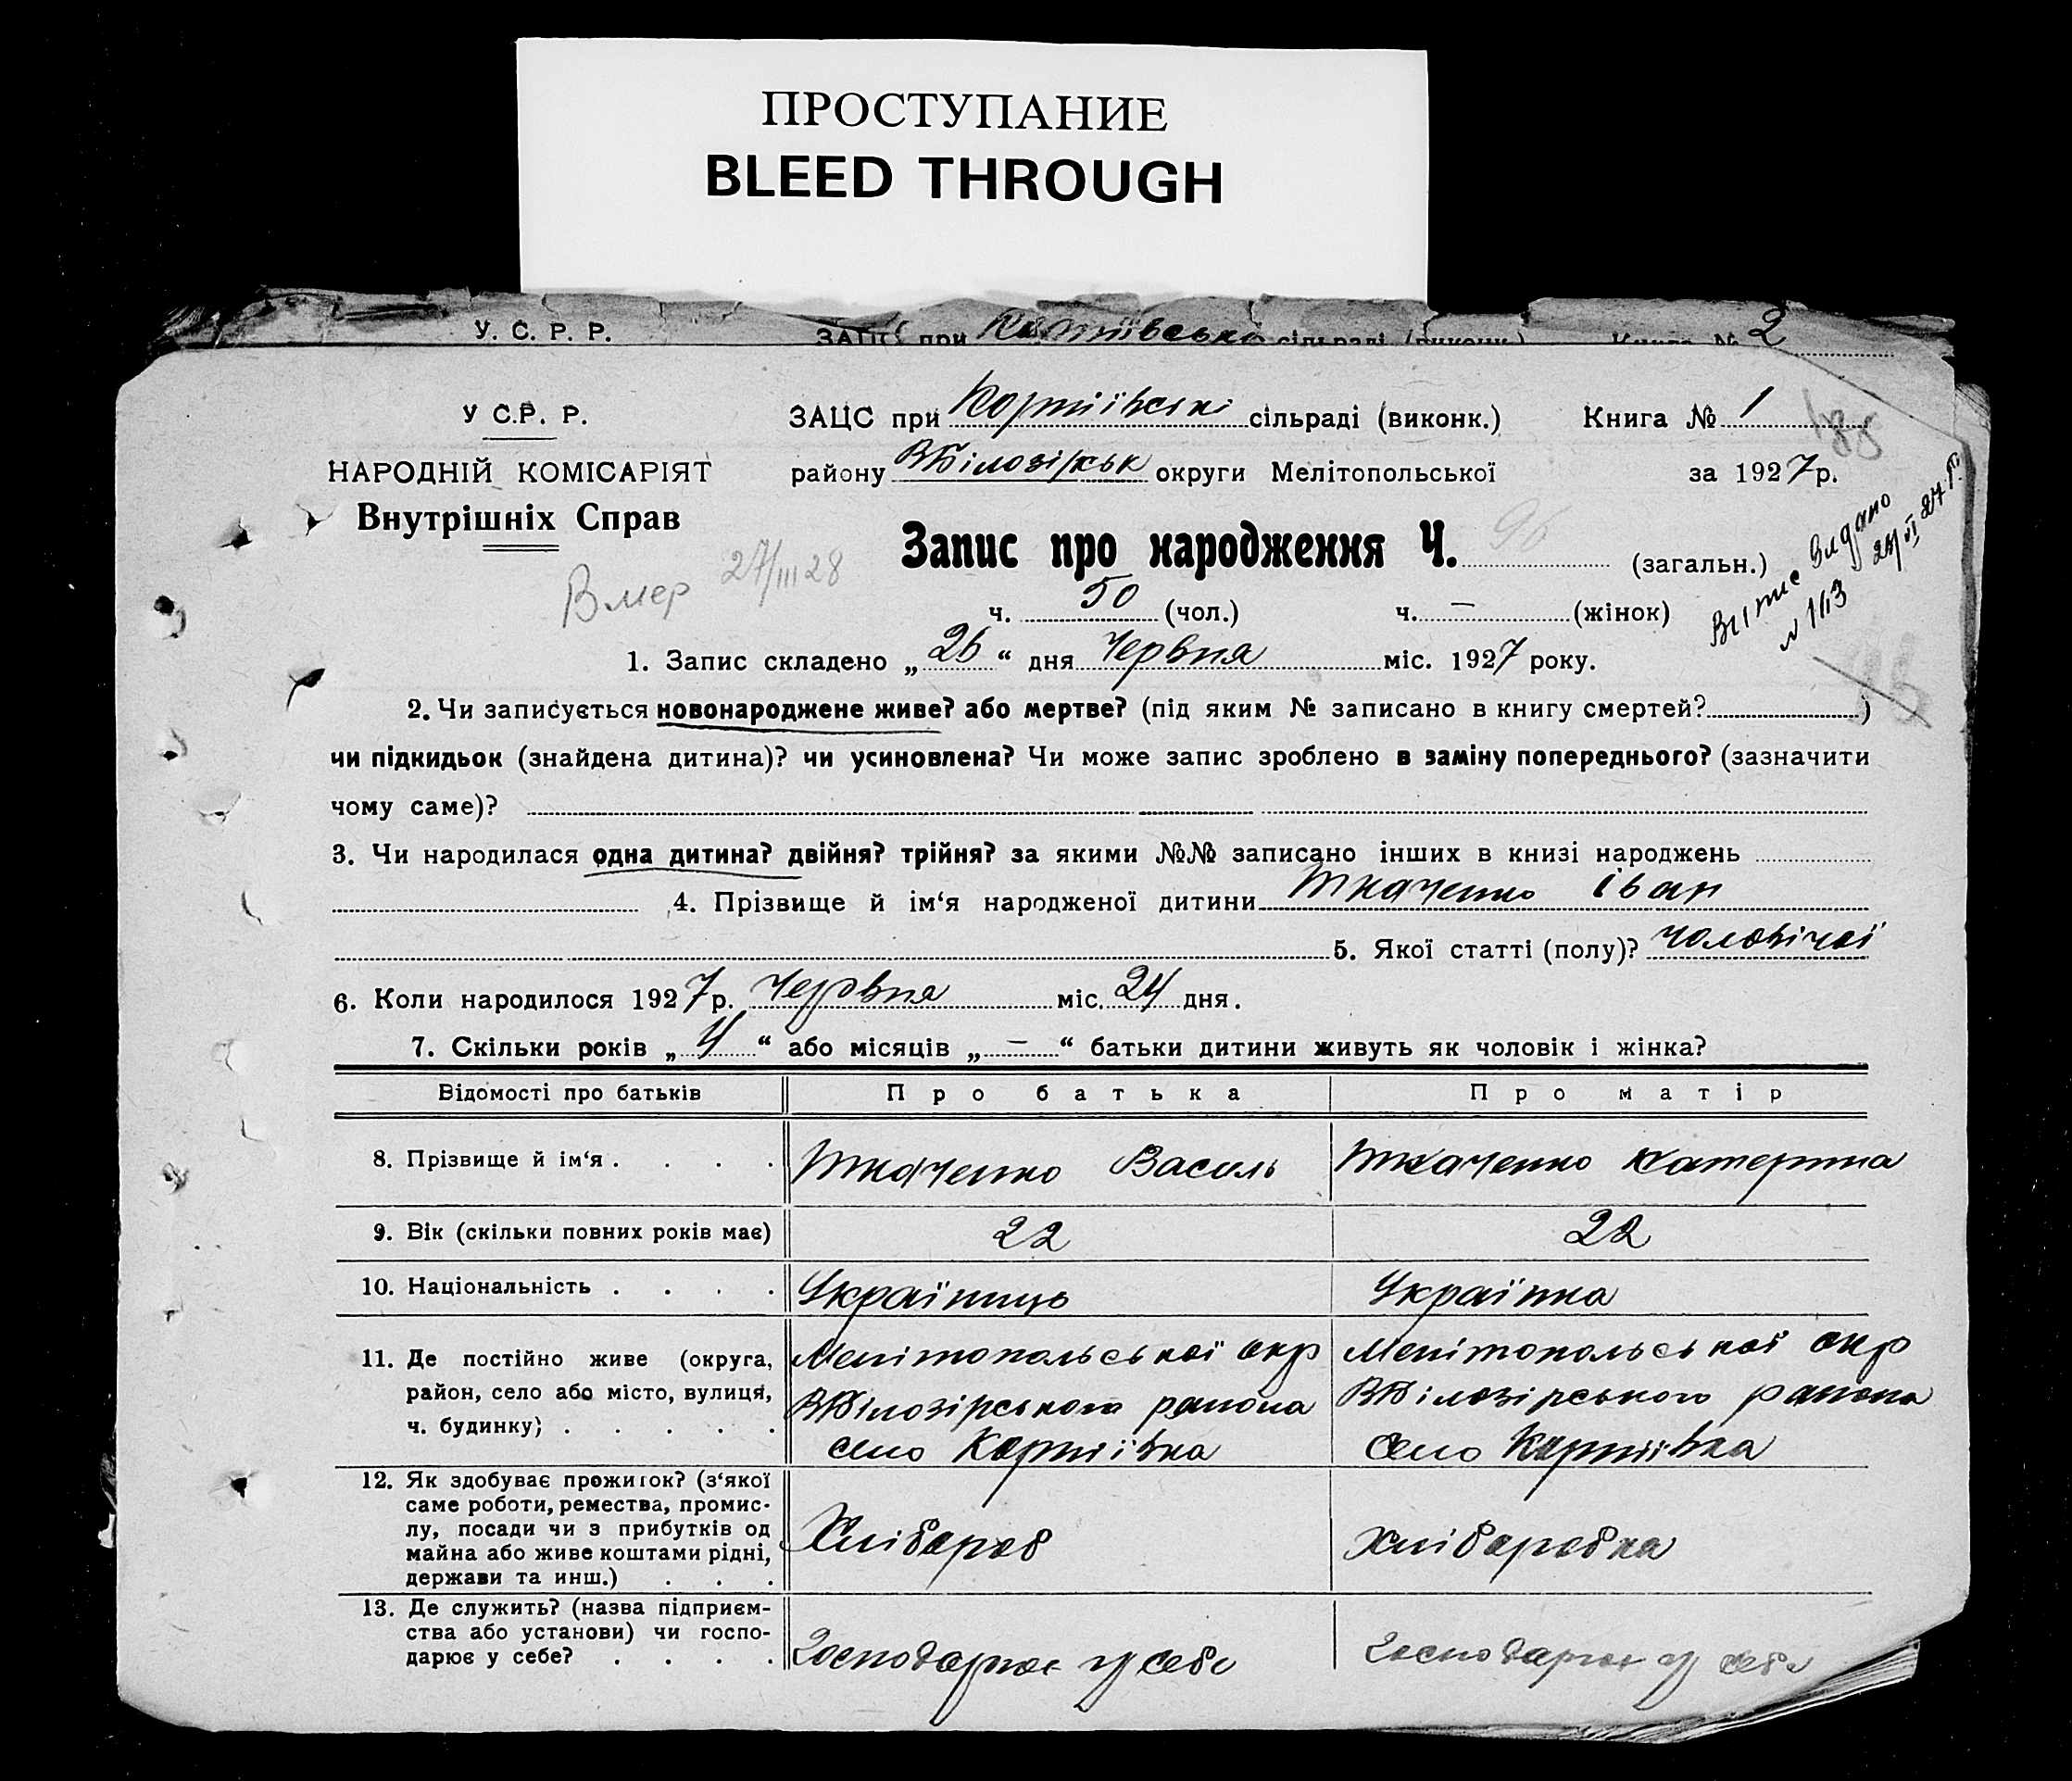 ПРОСТУПАНИЕ
BLEED THROUGH
У. С. Р. Р. ЗАЦС при сільраді (виконк.) Книга № 2
У С.Р. Р. ЗАЦС при сільраді (виконк.) Книга № 1
НАРОДНІЙ КОМІСАРІЯТ району ВБілозірськ округи Мелітопольської за 1927 р.
Внутрішніх Справ
Запис про народження Ч. 96 (загальн.)
Вмер 27/III 28
Витис видано
№ 113 24/VI 27 р.
ч. 50 (чол.) ч. – (жінок)
1. Запис складено „ 26 “ дня Червня міс. 1927 року.
2. Чи записується новонароджене живе? або мертве? (під яким № записано в книгу смертей? )
чи підкидьок (знайдена дитина)? чи усиновлена? Чи може запис зроблено в заміну попереднього? (зазначити
чому саме)?
3. Чи народилася одна дитина? двійня? трійня? за якими №№ записано інших в книзі народжень
4. Прізвище й ім‘я народженої дитини Ткаченко Іван
5. Якої статті (полу)? чоловічої
6. Коли народилося 1927 р. Червня міс. 24 дня.
7. Скільки років „ 4 “ або місяців „ – “ батьки дитини живуть як чоловік і жінка?
Відомості про батьків Про батька Про матір
8. Прізвище й ім‘я . . . . Ткаченко Василь Ткаченко Катерина
9. Вік (скільки повних років має) 22 22
10. Національність . . . . Українець Українка
11. Де постійно живе (округа, Мелітопольської окр Мелітопольської окр
район, село або місто, вулиця, ВБілозірського района ВБілозірського района
ч. будинку) . . . . . село Картіївка село Картіївка
12. Як здобуває прожиток? (з‘якої
саме роботи, ремества, промис-
лу, посади чи з прибутків од Хлібороб Хліборобка
майна або живе коштами рідні,
держави та инш.) . . .
13. Де служить? (назва підприєм-
ства або установи) чи госпо-
дарює у себе? . . . . Господарює у себе Господарює у себе